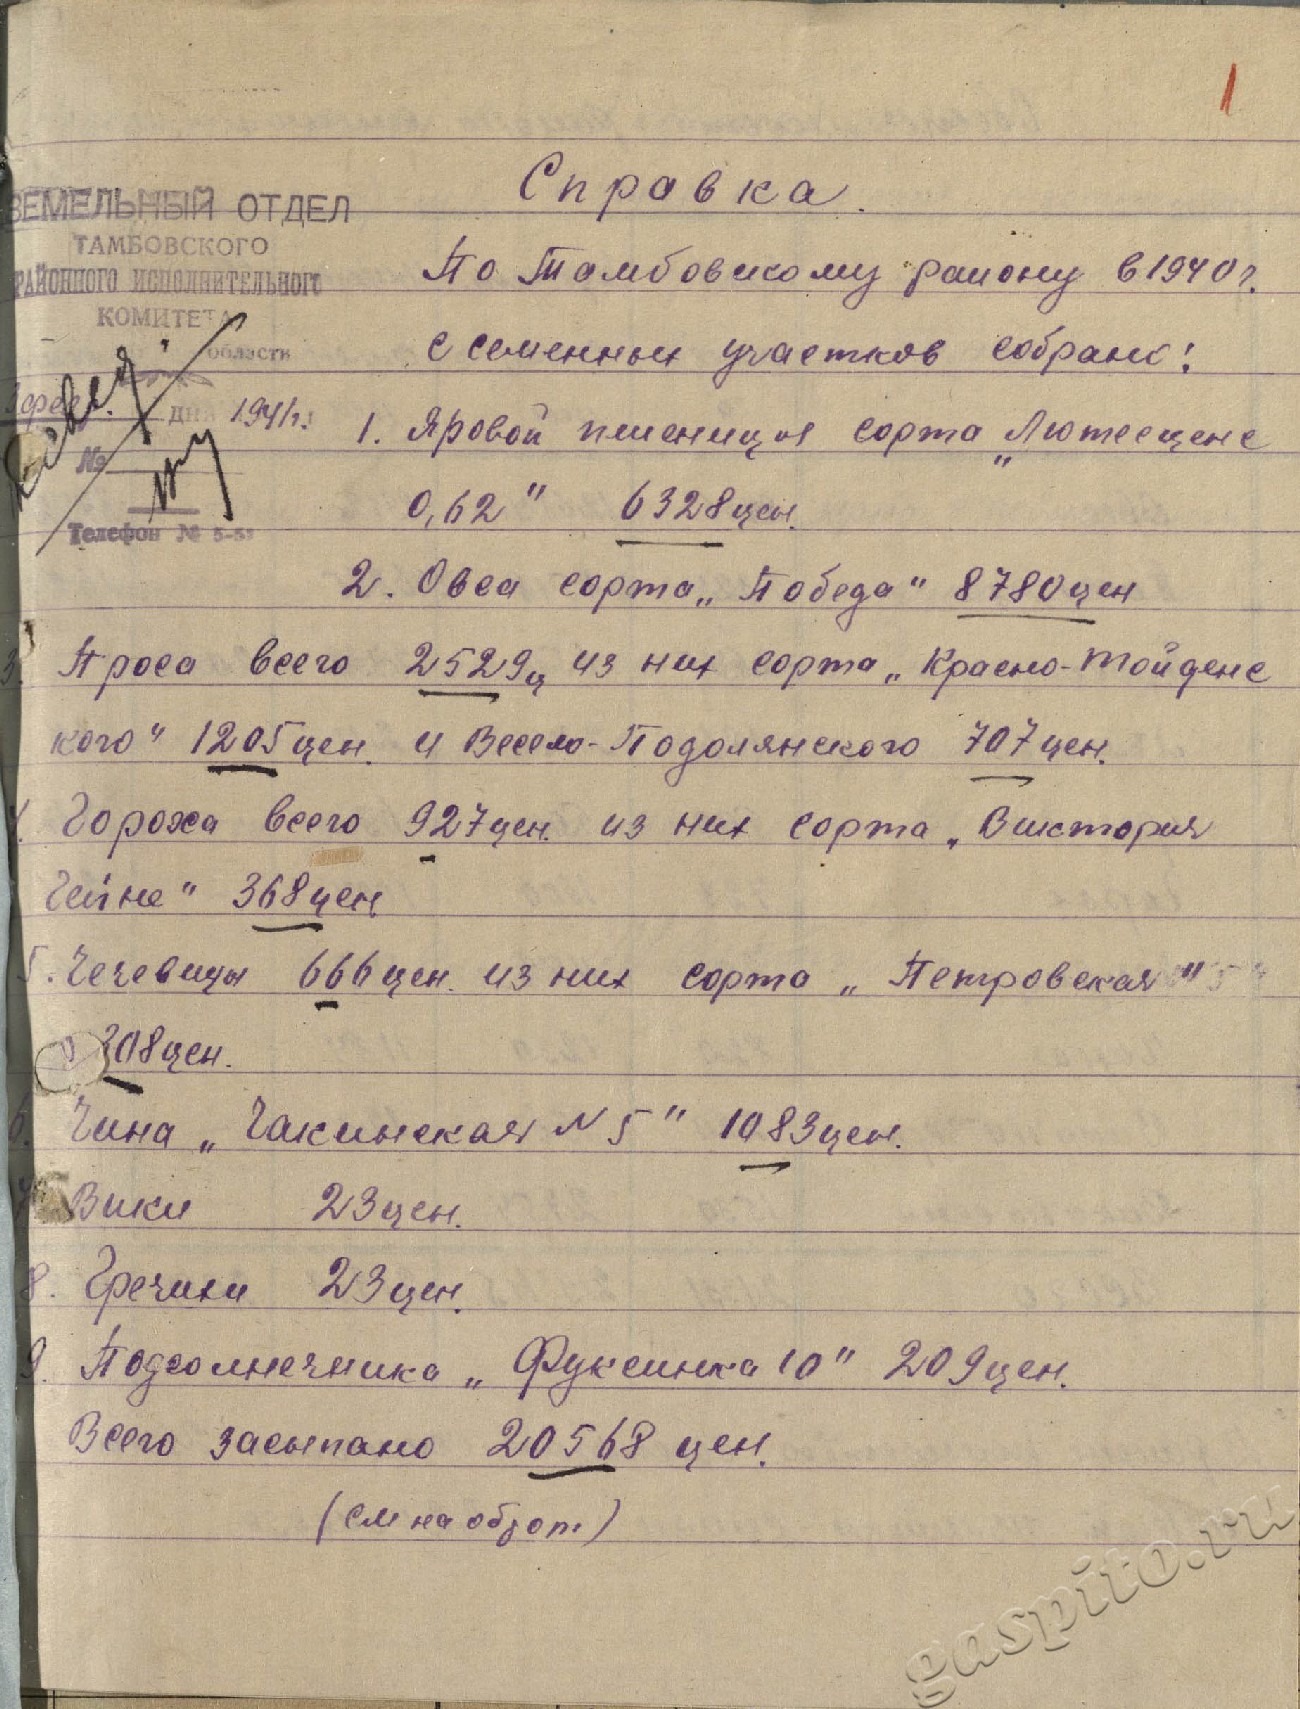 1
Справка.
ЗЕМЕЛЬНЫЙ ОТДЕЛ
ТАМБОВСКОГО
РАЙОННОГО ИСПОЛНИТЕЛЬНОГО
КОМИТЕТА
области
дня 1941г.
№
Телефон № 5-51
По Тамбовскому району в 1940г.
с семенных участков собрано:
1. Яровой пшеницы сорта „Лютесценс
0,62" 6328цен.
2. Овса сорта „Победа" 8780цен
3. Проса всего 2529ц из них сорта „Красно-Тойденс
кого" 1205цен. и Весело-Подолянского 707цен.
4. Гороха всего 927цен. из них сорта „Виктория
Гейне" 368цен
5. Чечевицы 666цен. из них сорта „Петровская"
308цен.
6. Чина „Чакинская N 5" 1083цен.
7. Вики 23цен.
8. Гречихи 23цен.
9. Подсолнечника „Фуксинка 10" 209цен.
Всего засыпано 20568 цен.
(см на оброт.)
gaspito.ru